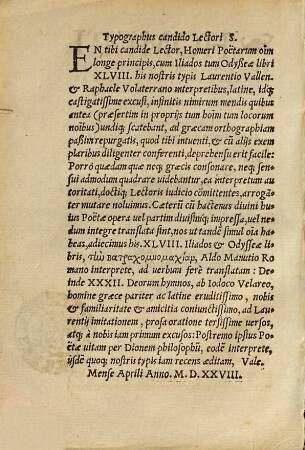 Typographus candido Lectori S.
EN tibi candide Lector, Homeri Poëtarum oīm
longe principis, cum Iliados tum Odysseæ libri
XLVIII. his nostris typis Laurentio Vallen.
& Raphaele Volaterrano interpretibus, latine, idq;
castigatissime excusi, infinitis nimirum mendis quibus
antea (præsertim in proprijs tum hoīm tum locorum
noībus) undiq; scatebant, ad græcam orthographiam
passim repurgatis, quod tibi intuenti, & cū alijs exem
plaribus diligenter conferenti, deprehensu erit facile:
Porrò quædam quæ neq; græcis consonare, neq; sen-
sui admodum quadrare uidebantur, ea interpretum au
toritati, doctiq; Lectoris iudicio cōmittentes, arrogā-
ter mutare noluimus. Cæterū cū hactenus diuini hu
ius Poëtæ opera uel partim diuisimq; impressa, uel ne
dum integre translata sint, nos ut tandē simul oīa ha
beas, adiecimus his. XLVIII. Iliados & Odysseæ li
bris, τὴν βατραχομυομαχίαν, Aldo Manutio Ro
mano interprete, ad uerbum ferè translatam: De
inde XXXII. Deorum hymnos, ab Iodoco Velareo,
homine græce pariter ac latine eruditissimo, nobis
& familiaritate & amicitia coniunctissimo, ad Lau-
rentij imitationem, prosa oratione tersissime uersos,
atq; à nobis iam primum excusos: Postremo ipsius Poë
tæ uitam per Dionem philosophū, eodē interprete,
ijsdē quoq; nostris typis iam recens æditam, Vale.
Mense Aprili Anno. M. D. XXVIII.